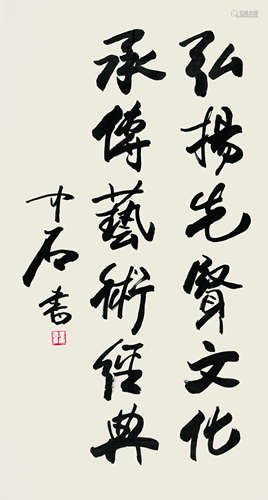 弘揚先賢文化
承傳藝術經典
中石書